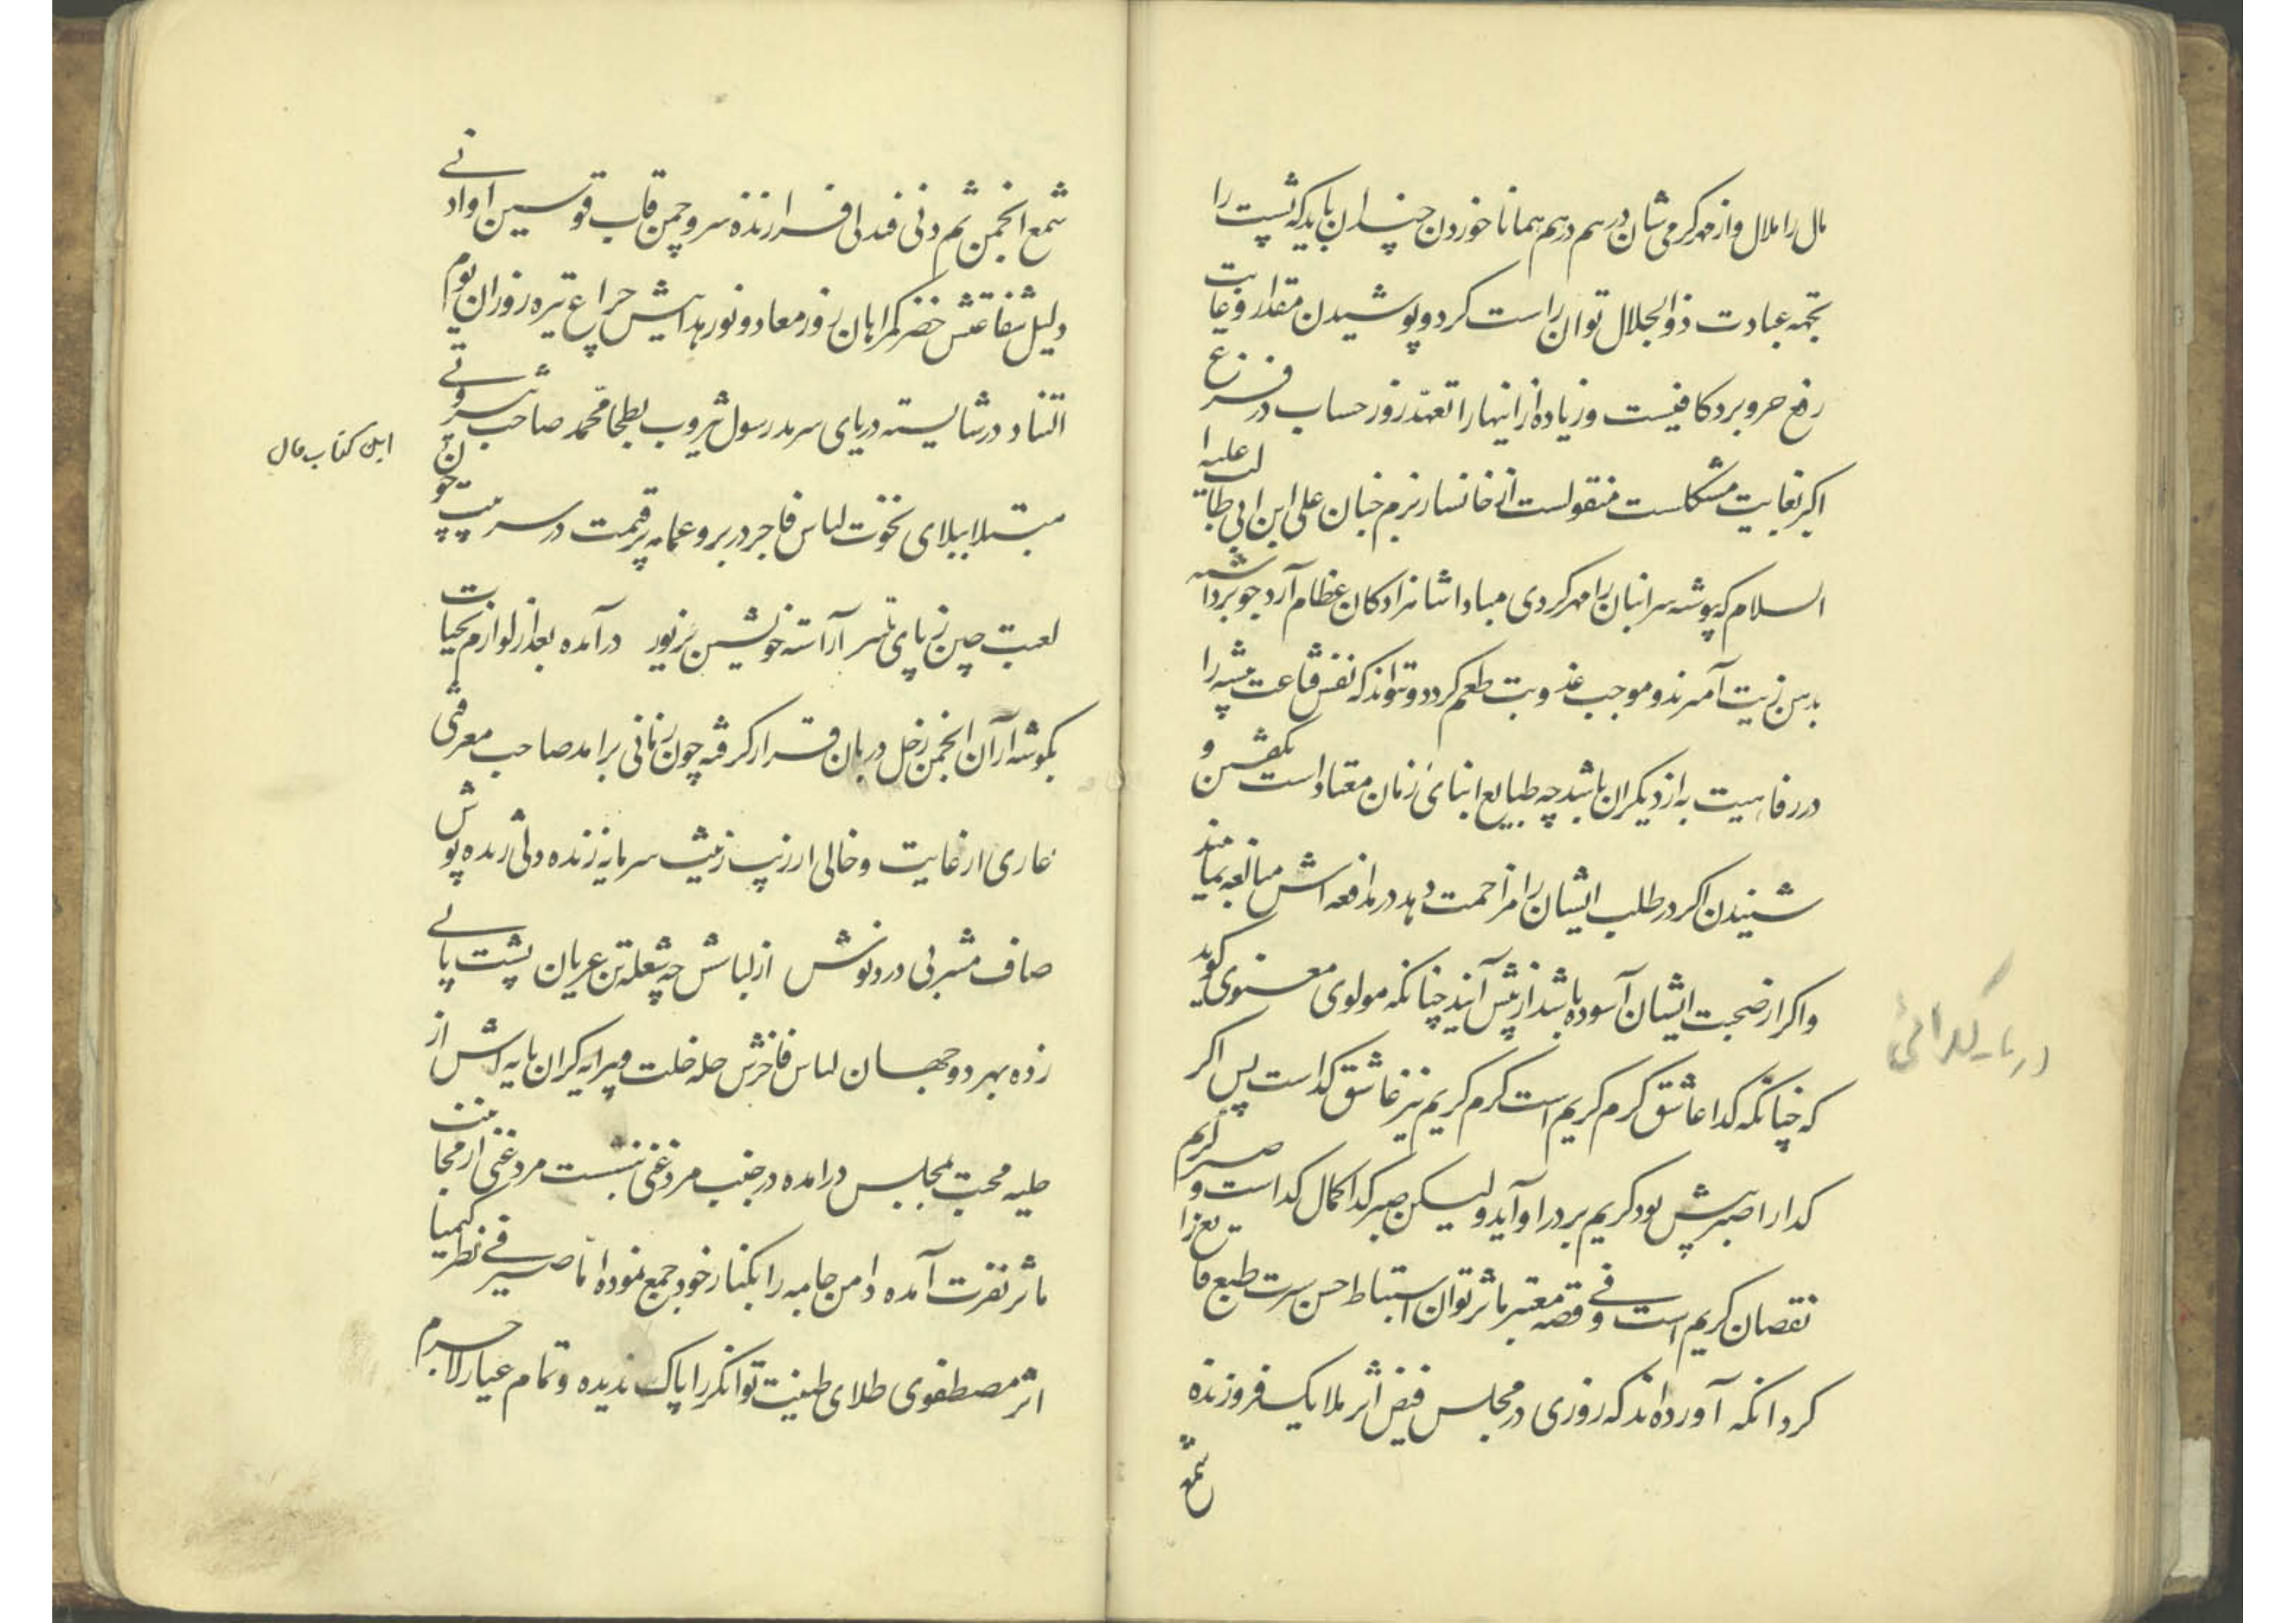 مال را ملال و از مهر کرمی شان درهم درهم همانا خوردن چندان باید که پشت را
بجهه عبادت ذوالجلال توان راست کرد و پوشیدن مقدار وغایت
رفع حر و برد کافیست و زیاده از اینها را تعهد روز حساب در فزع
اکبر بغایت مشکلست منقولست از خانسار بزم جنان علی ابن ابی طالب علیه ا
السلام که پوشه سر انبان را مهر کردی مبادا شاهزادکان عظام آرد جو برداشته
بدهن زیت آمیزند و موجب عذوبت طعم کردد و تواند که نفس قناعت پیشه را
در رفاهیت به از دیکران باشد چه طبایع ابنای زمان معتاد است بکفتن و
شنیدن اکر در طلب ایشان را مزاحمت دهد در مدافعه اش مبالغه نمایند
واکر از صحبت ایشان آسوده باشد از پیش آیند چنانکه مولوی معنوی کوید
که چنانکه کدا عاشق کرم کریم است کرم کریم نیز عاشق کداست پس اکر
کدا را صبر بیش بود کریم بر در او آید ولیکن صبر کدا کمال کداست و صبر کریم
نقصان کریم است و فی قصه معتبر مآثر توان استنباط حسن سیرت طبع قانع را
کرد انکه آورده اند که روزی در مجلس فیض اثر ملایک فروزنده
شمع
در باب کدائی
شمع انجمن ثم دنی فتدلی افرازنده سرو چمن قاب قوسین او ادنی
دلیل شفاعتش خضر کمراهان روز معاد و نور هدایتش چراغ تیره روزان یوم
التناد در شایسته دریای سرمد رسول یثرب و بطحا محمد صاحب ثروتی
مبتلا ببلای نخوت لباس فاخر در بر و عمامه پر قیمت در سر چون
لعبت چین ز پای تا سر آراسته خویشتن بزیور درآمده بعد از لوازم تحیات
بکوشه از آن انجمن قرار کرفته چون زمانی برامد صاحب معرفتی
عاری از غایت و خالی از زیب و زینت سرمایه زنده دلی ژنده پوش
صاف مشربی دردنوش از لباسش چه شعله تن عریان پشت پائی
زده بهر دو جهان لباس فاخرش حله خلت و پیرایه کران مایه اش از
حلیه محبت بمجلس درامده در جنب مرد غنی بنشست مرد غنی از مجانبت
ماثر نفرت آمده دامن جامه را بکنار خود جمع نموده اما صیرفی نظر کیمیا
اثر مصطفوی طلای طینت توانکر را پاک ندیده و تمام عیار لاجرم
این کتاب مال